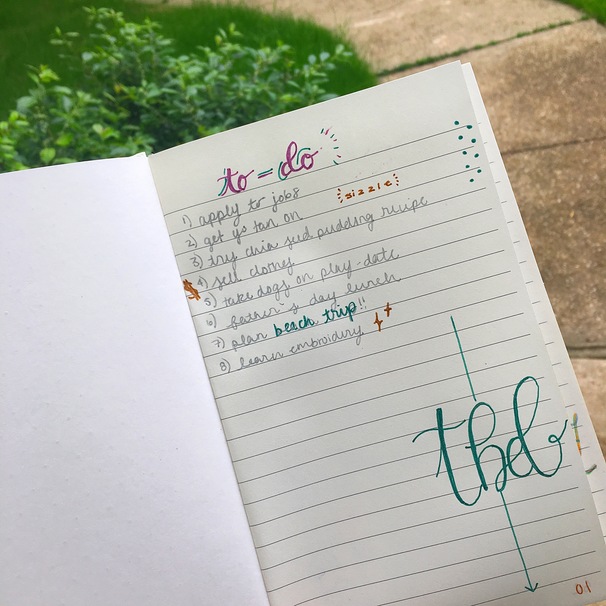 to-do
1) apply to jobs
2) get yo tan on sizzle
3) try chia seed pudding recipe
$ 4) sell clothes
5) take dogs on play-date
6) father's day lunch
7) plan beach trip!!
8) learn embroidery
tbd
01